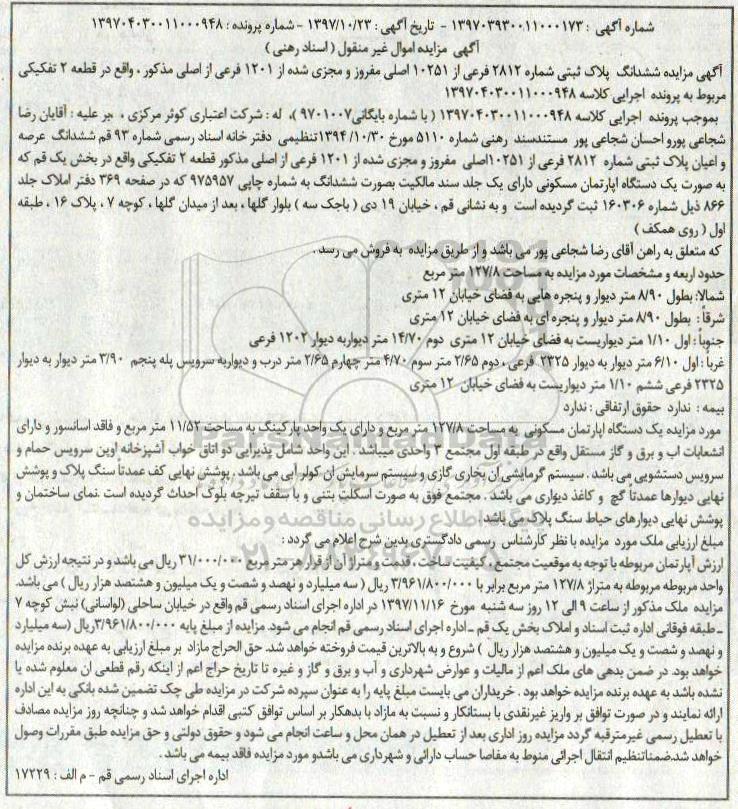 شماره آگهی : ۱۳۹۷۰۳۹۳۰۰۱۱۰۰۰۱۷۳ - تاریخ آگهی : ۱۳۹۷/۱۰/۲۳ - شماره پرونده : ۱۳۹۷۰۴۰۳۰۰۱۱۰۰۰۹۴۸
آگهی مزایده اموال غیر منقول ( اسناد رهنی )
آگهی مزایده ششدانگ پلاک ثبتی شماره ۲۸۱۲ فرعی از ۱۰۲۵۱ اصلی مفروز و مجزی شده از ۱۲۰۱ فرعی از اصلی مذکور ، واقع در قطعه ۲ تفکیکی
مربوط به پرونده اجرایی کلاسه ۱۳۹۷۰۴۰۳۰۰۱۱۰۰۰۹۴۸
بموجب پرونده اجرایی کلاسه ۱۳۹۷۰۴۰۳۰۰۱۱۰۰۰۹۴۸ ( با شماره بایگانی ۹۷۰۱۰۰۷ )، له : شرکت اعتباری کوثر مرکزی ، ،بر علیه : آقایان رضا
شجاعی پورو احسان شجاعی پور مستندسند رهنی شماره ۵۱۱۰ مورخ ۱۳۹۴/۱۰/۳۰تنظیمی دفتر خانه اسناد رسمی شماره ۹۳ قم ششدانگ عرصه
و اعیان پلاک ثبتی شماره ۲۸۱۲ فرعی از ۱۰۲۵۱اصلی مفروز و مجزی شده از ۱۲۰۱ فرعی از اصلی مذکور قطعه ۲ تفکیکی واقع در بخش یک قم که
به صورت یک دستگاه اپارتمان مسکونی دارای یک جلد سند مالکیت بصورت ششدانگ به شماره چاپی ۹۷۵۹۵۷ که در صفحه ۳۶۹ دفتر املاک جلد
۸۶۶ ذیل شماره ۱۶۰۳۰۶ ثبت گردیده است و به نشانی قم ، خیابان ۱۹ دی ( باجک سه ) بلوار گلها ، بعد از میدان گلها ، کوچه ۷ ، پلاک ۱۶ ، طبقه
اول ( روی همکف )
که متعلق به راهن آقای رضا شجاعی پور می باشد و از طریق مزایده به فروش می رسد .
حدود اربعه و مشخصات مورد مزایده به مساحت ۱۲۷/۸ متر مربع
شمالا: بطول ۸/۹۰ متر دیوار و پنجره هایی به فضای خیابان ۱۲ متری
شرقاً : بطول ۸/۹۰ متر دیوار و پنجره ای به فضای خیابان ۱۲ متری
جنوباً : اول ۱/۱۰ متر دیواریست به فضای خیابان ۱۲ متری دوم ۱۴/۷۰ متر دیواربه دیوار ۱۲۰۲ فرعی
غرباً : اول ۶/۱۰ متر دیوار به دیوار ۲۳۲۵ فرعی ، دوم ۲/۶۵ متر سوم ۴/۷۰ متر چهارم ۲/۶۵ متر درب و دیواربه سرویس پله پنجم ۳/۹۰ متر دیوار به دیوار
۲۳۲۵ فرعی ششم ۱/۱۰ متر دیواریست به فضای خیابان ۱۲ متری
بیمه : ندارد حقوق ارتفاقی : ندارد
مورد مزایده یک دستگاه اپارتمان مسکونی به مساحت ۱۲۷/۸ متر مربع و دارای یک واحد پارکینگ به مساحت ۱۱/۵۲ متر مربع و فاقد اسانسور و دارای
انشعابات اب و برق و گاز مستقل واقع در طبقه اول مجتمع ۳ واحدی میباشد . این واحد شامل پذیرایی دو اتاق خواب آشپزخانه اوپن سرویس حمام و
سرویس دستشویی می باشد . سیستم گرمایشی آن بخاری گازی و سیستم سرمایش ان کولر آبی می باشد . پوشش نهایی کف عمدتاً سنگ پلاک و پوشش
نهایی دیوارها عمدتاً گچ و کاغذ دیواری می باشد . مجتمع فوق به صورت اسکلت بتنی و با سقف تیرچه بلوک احداث گردیده است .نمای ساختمان و
پوشش نهایی دیوارهای حیاط سنگ پلاک می باشد
مبلغ ارزیابی ملک مورد مزایده با نظر کارشناس رسمی دادگستری بدین شرح اعلام می گردد :
ارزش آپارتمان مربوطه با توجه به موقعیت مجتمع ، کیفیت ساخت ، قدمت و متراژ آن از قرار هر متر مربع ۳۱/۰۰۰/۰۰۰ ریال می باشد و در نتیجه ارزش کل
واحد مربوطه مربوطه به متراژ ۱۲۷/۸ متر مربع برابر با ۳/۹۶۱/۸۰۰/۰۰۰ ریال ( سه میلیارد و نهصد و شصت و یک میلیون و هشتصد هزار ریال ) می باشد.
مزایده ملک مذکور از ساعت ۹ الی ۱۲ روز سه شنبه مورخ ۱۳۹۷/۱۱/۱۶ در اداره اجرای اسناد رسمی قم واقع در خیابان ساحلی (لواسانی) نبش کوچه ۷
ـ طبقه فوقانی اداره ثبت اسناد و املاک بخش یک قم ـ اداره اجرای اسناد رسمی قم انجام می شود. مزایده از مبلغ پایه ۳/۹۶۱/۸۰۰/۰۰۰ریال (سه میلیارد
و نهصد و شصت و یک میلیون و هشتصد هزار ریال ) شروع و به بالاترین قیمت فروخته خواهد شد. حق الحراج مازاد بر مبلغ ارزیابی به عهده برنده مزایده
خواهد بود. در ضمن بدهی های ملک اعم از مالیات و عوارض شهرداری و آب و برق و گاز و غیره تا تاریخ حراج اعم از اینکه رقم قطعی ان معلوم شده یا
نشده باشد به عهده برنده مزایده خواهد بود . خریداران می بایست مبلغ پایه را به عنوان سپرده شرکت در مزایده طی چک تضمین شده بانکی به این اداره
ارائه نمایند و در صورت توافق بر واریز غیرنقدی با بستانکار و نسبت به مازاد با بدهکار بر اساس توافق کتبی اقدام خواهد شد و چنانچه روز مزایده مصادف
با تعطیل رسمی غیرمترقبه گردد مزایده روز اداری بعد از تعطیل در همان محل و ساعت انجام می شود و حقوق دولتی و حق مزایده طبق مقررات وصول
خواهد شد.ضمناتنظیم انتقال اجرائی منوط به مفاصا حساب دارائی و شهرداری می باشدو مورد مزایده فاقد بیمه می باشد .
اداره اجرای اسناد رسمی قم - م الف : ۱۷۲۲۹